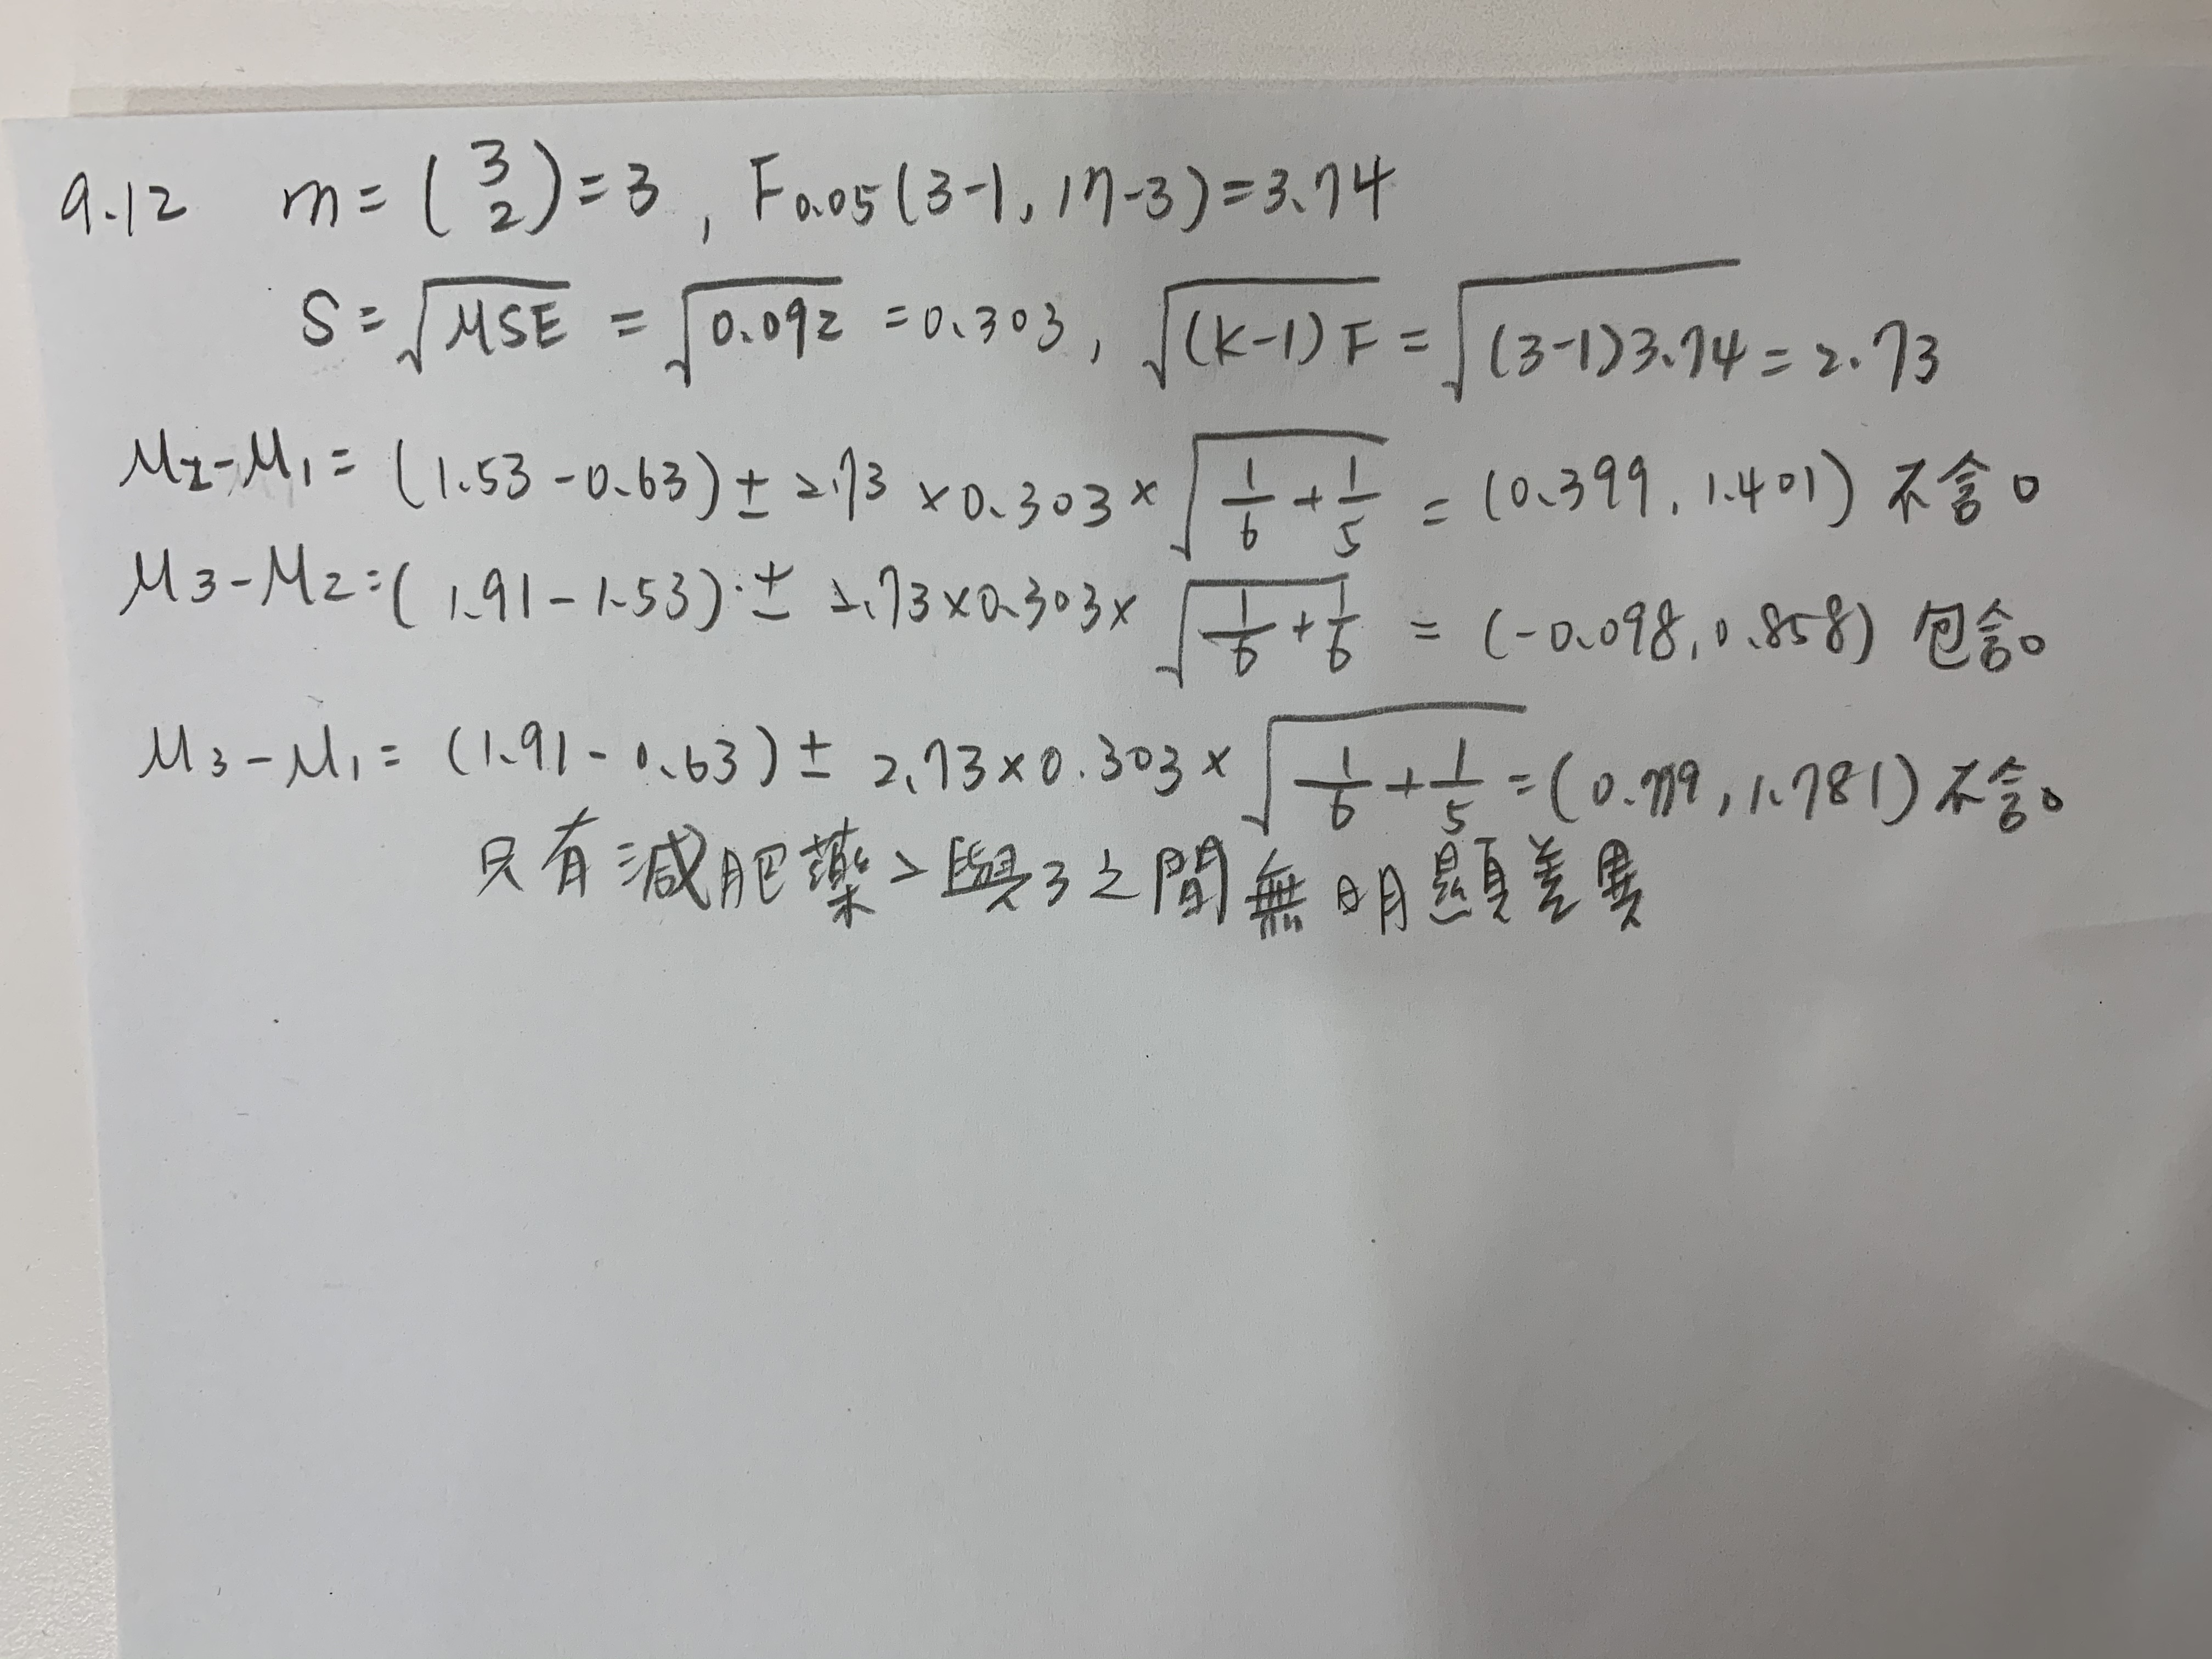 9.12 m = (3 2) = 3, F0.05(3-1, 17-3) = 3.74
S = √MSE = √0.092 = 0.303, √(k-1)F = √(3-1)3.74 = 2.73
μ2-μ1 = (1.53-0.63) ± 2.73 × 0.303 × √1/6 + 1/5 = (0.399, 1.401) 不含0
μ3-μ2 = (1.91-1.53) ± 2.73 × 0.303 × √1/6 + 1/6 = (-0.098, 0.858) 包含0
μ3-μ1 = (1.91-0.63) ± 2.73 × 0.303 × √1/6 + 1/5 = (0.779, 1.781) 不含0
只有減肥藥2與3之間無明顯差異